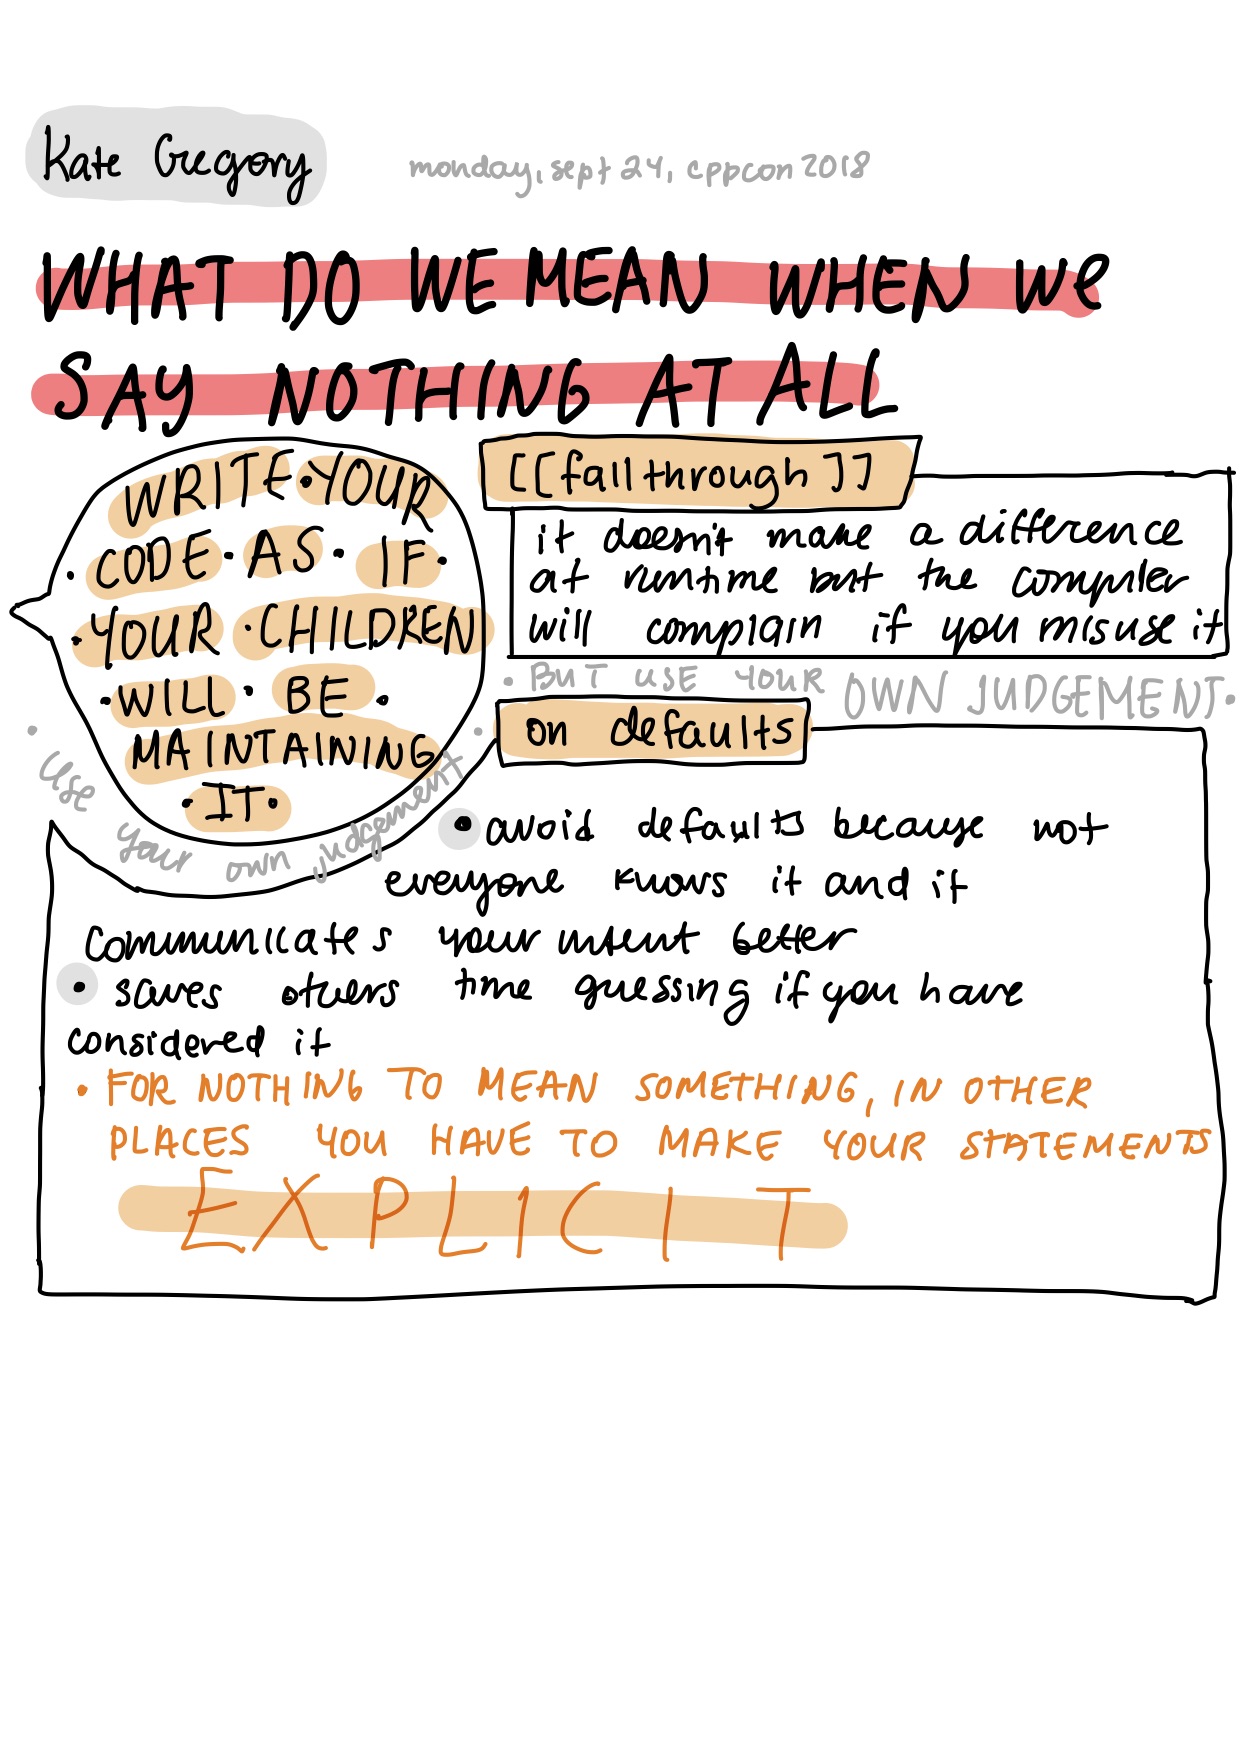 Kate Gregory
monday, sept 24, cppcon 2018
WHAT DO WE MEAN WHEN We
SAY NOTHING AT ALL
WRITE·YOUR
·CODE·AS·IF·
·YOUR·CHILDREN
·WILL·BE·
MAINTAINING
·IT·
· use your own judgement ·
[[fallthrough]]
it doesn't make a difference
at runtime but the compiler
will complain if you misuse it
· BUT USE YOUR OWN JUDGEMENT·
on defaults
• avoid defaults because not
everyone knows it and it
communicates your intent better
• saves others time guessing if you have
considered it
• FOR NOTHING TO MEAN SOMETHING, IN OTHER
PLACES YOU HAVE TO MAKE YOUR STATEMENTS
EXPLICIT